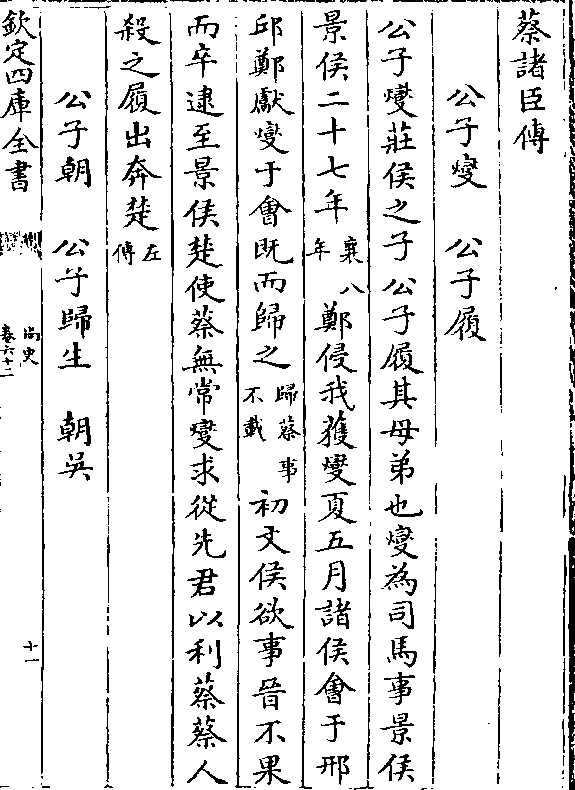 蔡諸臣傳
公子燮　公子履
公子燮莊侯之子公子履其母弟也燮為司馬事景侯
景侯二十七年襄八年鄭侵我獲燮夏五月諸侯會于邢
邱鄭獻燮于會既而歸之歸蔡事不載初文侯欲事晉不果
而卒逮至景侯楚使蔡無常燮求從先君以利蔡蔡人
殺之履出奔楚左傳
公子朝　公子歸生　朝吳
欽定四庫全書
尚史
卷六十二
十一